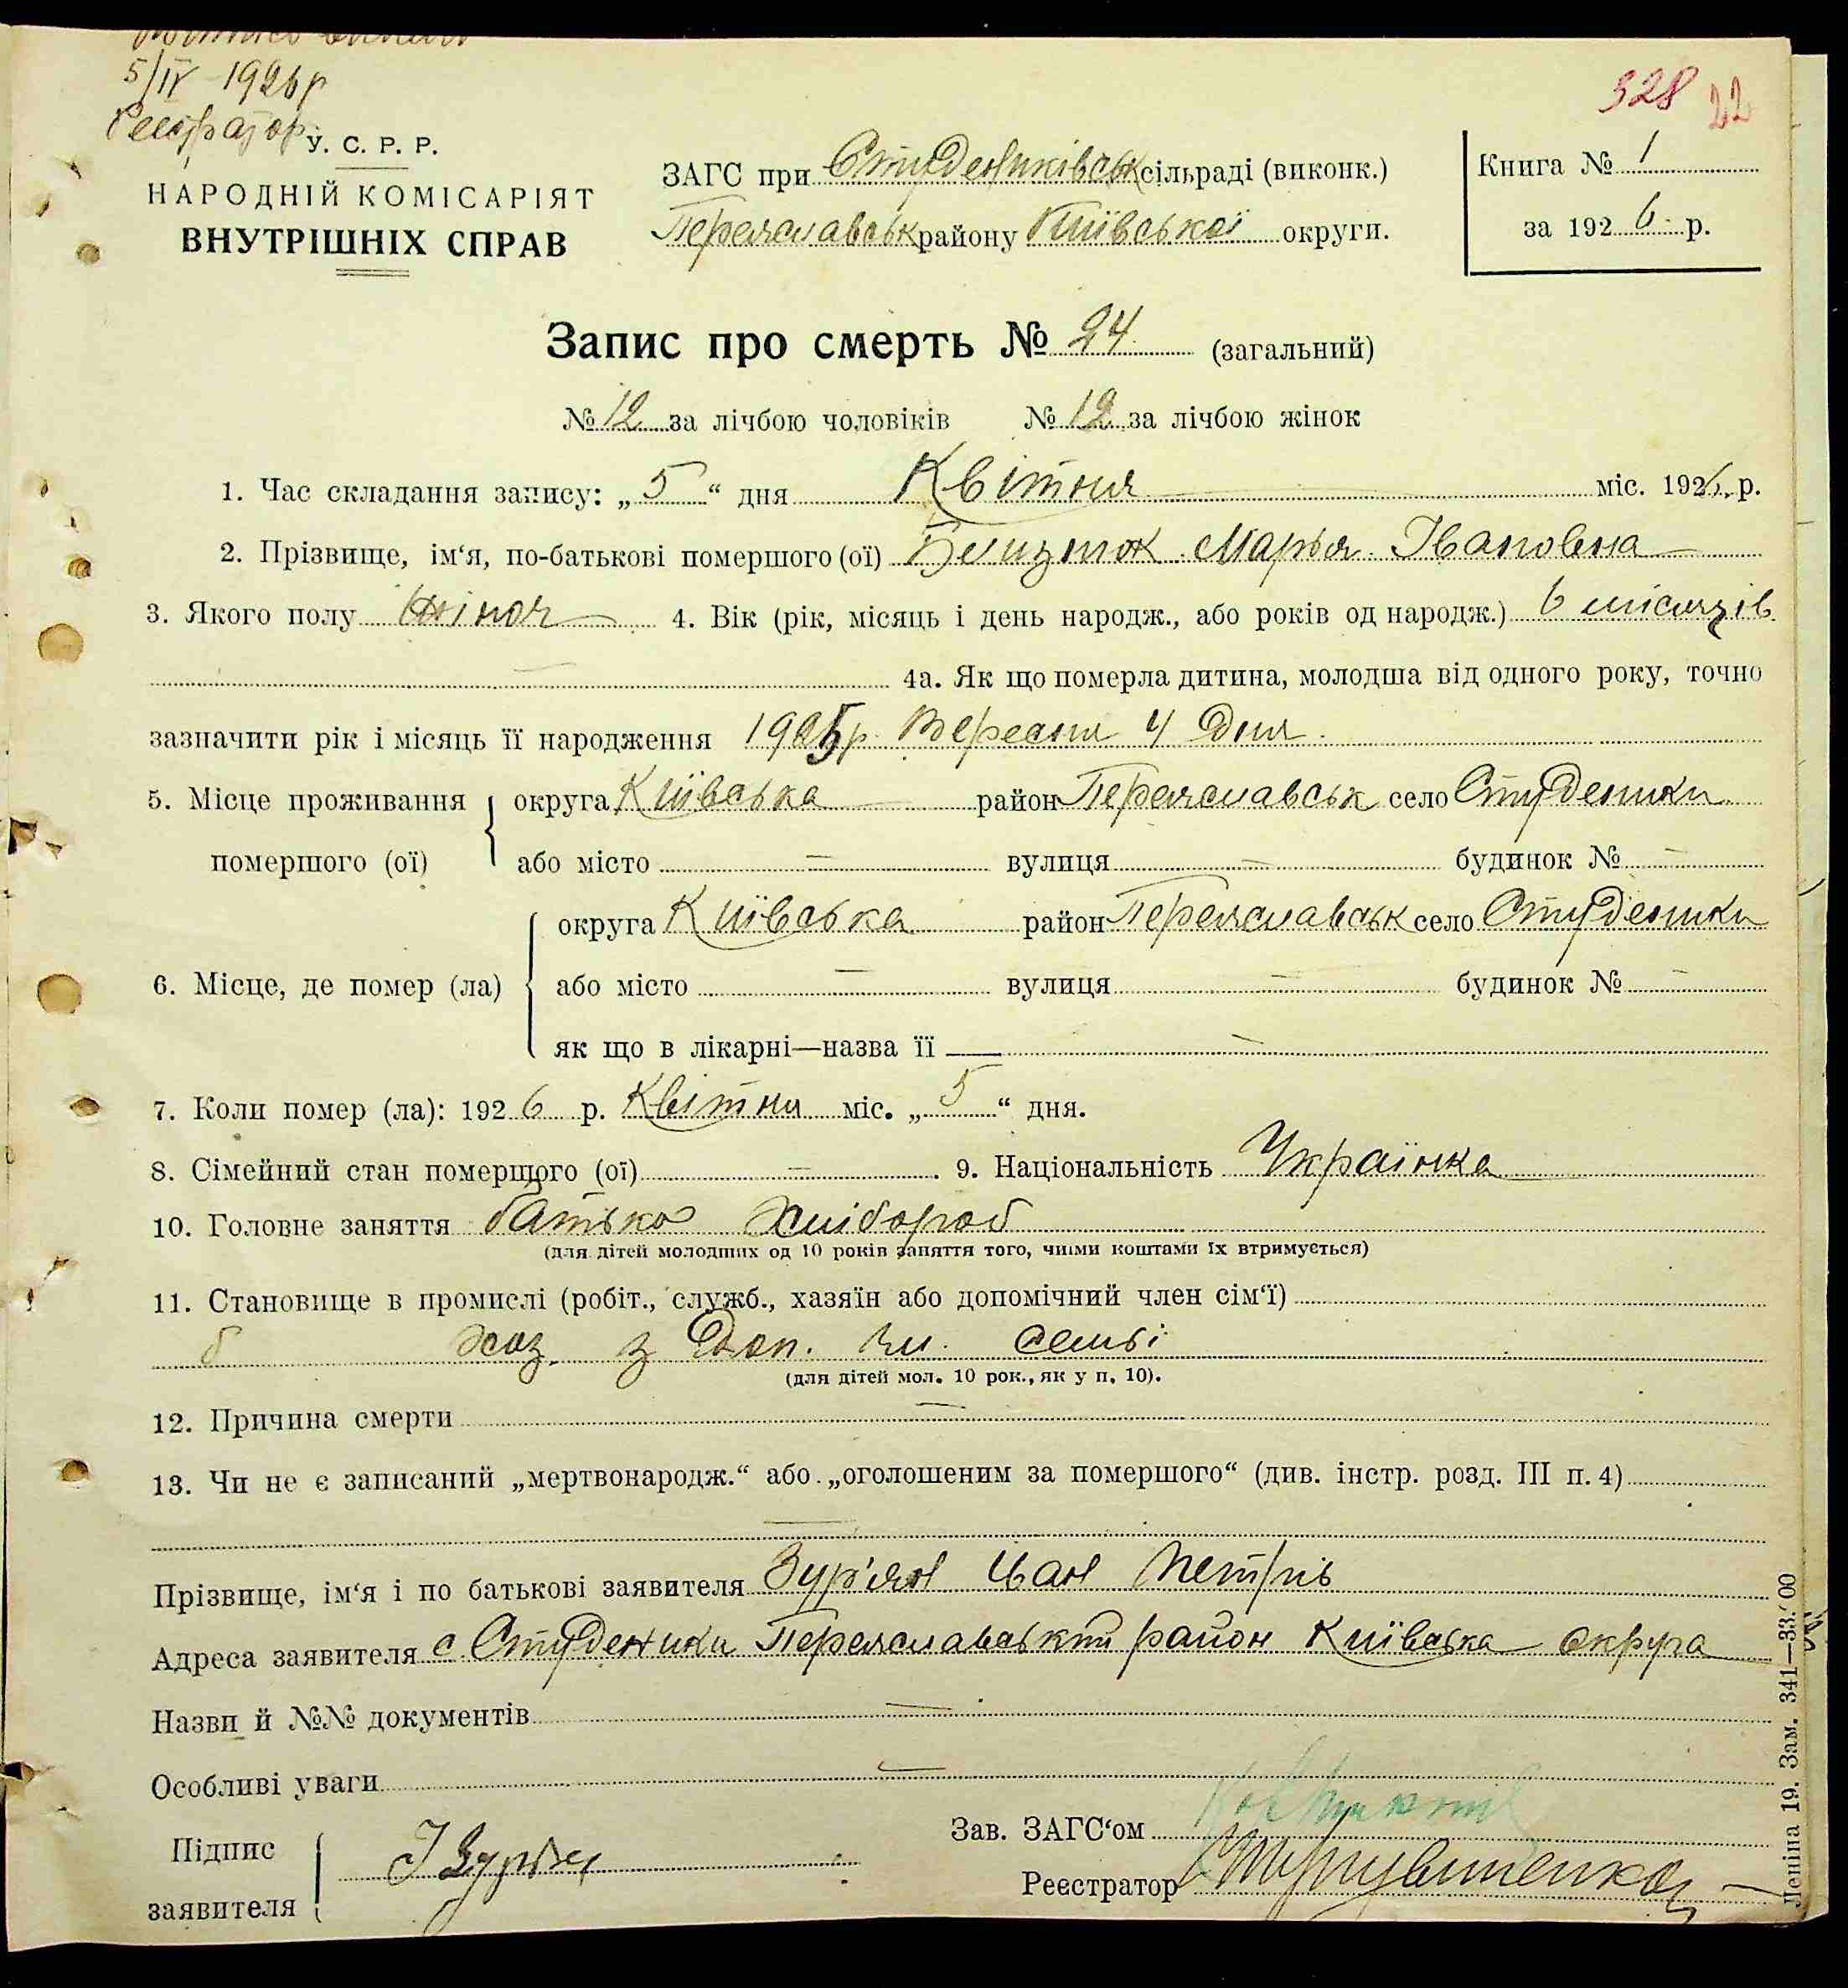 5/IV 1926 р
Реєстратор
328 22
У. С. Р. Р.
НАРОДНІЙ КОМІСАРІЯТ
ВНУТРІШНІХ СПРАВ
ЗАГС при Студениківськ сільраді (виконк.)
Переяславськ району Київської округи.
Книга № 1
за 1926 р.
Запис про смерть № 24 (загальний)
№ 12 за лічбою чоловіків № 12 за лічбою жінок
1. Час складання запису: „5“ дня Квітня міс. 1926 р.
2. Прізвище, ім‘я, по-батькові помершого (ої) Марья Івановна
3. Якого полу жіноч 4. Вік (рік, місяць і день народж., або років од народж.) 6 місяців
4а. Як що померла дитина, молодша від одного року, точно
зазначити рік і місяць її народження 1925 р. Вересня 4 Дня
5. Місце проживання округа Київська район Переяславськ село Студеники
помершого (ої) або місто — вулиця — будинок № —
округа Київська район Переяславськ село Студеники
6. Місце, де помер (ла) або місто — вулиця — будинок № —
як що в лікарні—назва її —
7. Коли помер (ла): 1926 р. Квітня міс. „5“ дня.
8. Сімейний стан померщого (ої) — 9. Національність Українка
10. Головне заняття батько хлібороб
(для дітей молодших од 10 років заняття того, чиїми коштами їх втримується)
11. Становище в промислі (робіт., служб., хазяїн або допомічний член сім‘ї)
б хаз. з Доп. чл. семьї
(для дітей мол. 10 рок., як у п. 10).
12. Причина смерти —
13. Чи не є записаний „мертвонародж.“ або „оголошеним за помершого“ (див. інстр. розд. III п. 4)
—
Прізвище, ім‘я і по батькові заявителя Зур'ян Іван Петрів
Адреса заявителя с. Студеники Переяславський район Київська округа
Назви й №№ документів —
Особливі уваги —
Підпис
заявителя
І Зурьян
Зав. ЗАГС‘ом
Реєстратор
Леніна 19. Зам. 341—33.000